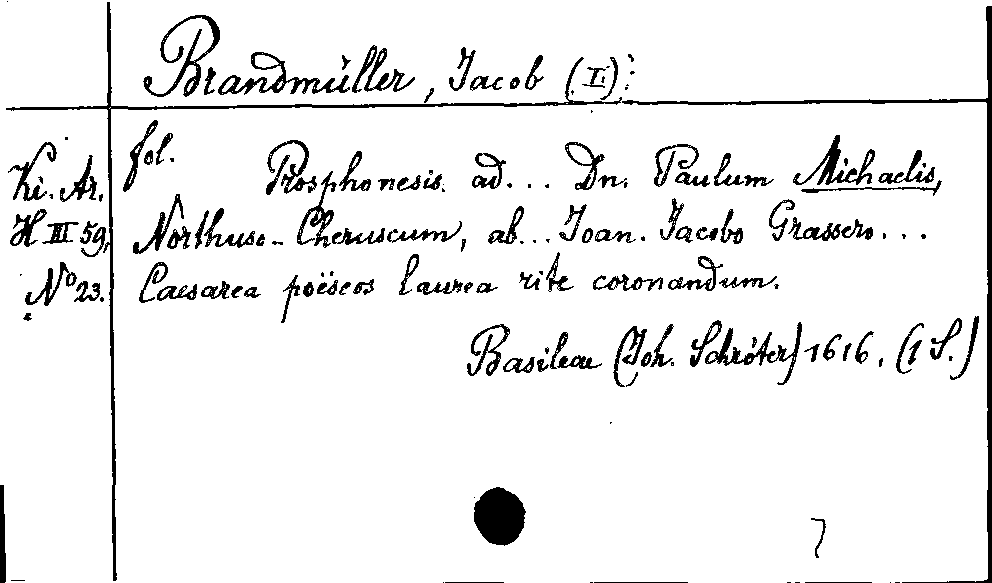 Brandmüller, Jacob (I):
fol.
Ki. Ar. Prosphonesis ad... Dn. Paulum Michaelis,
H III 59, Northuso-Cheruscum, ab... Joan. Jacobo Grassero...
No 23. Caesarea poëseos laurea rite coronandum.
Basileae (Joh. Schröter) 1616. (1 S.)
7